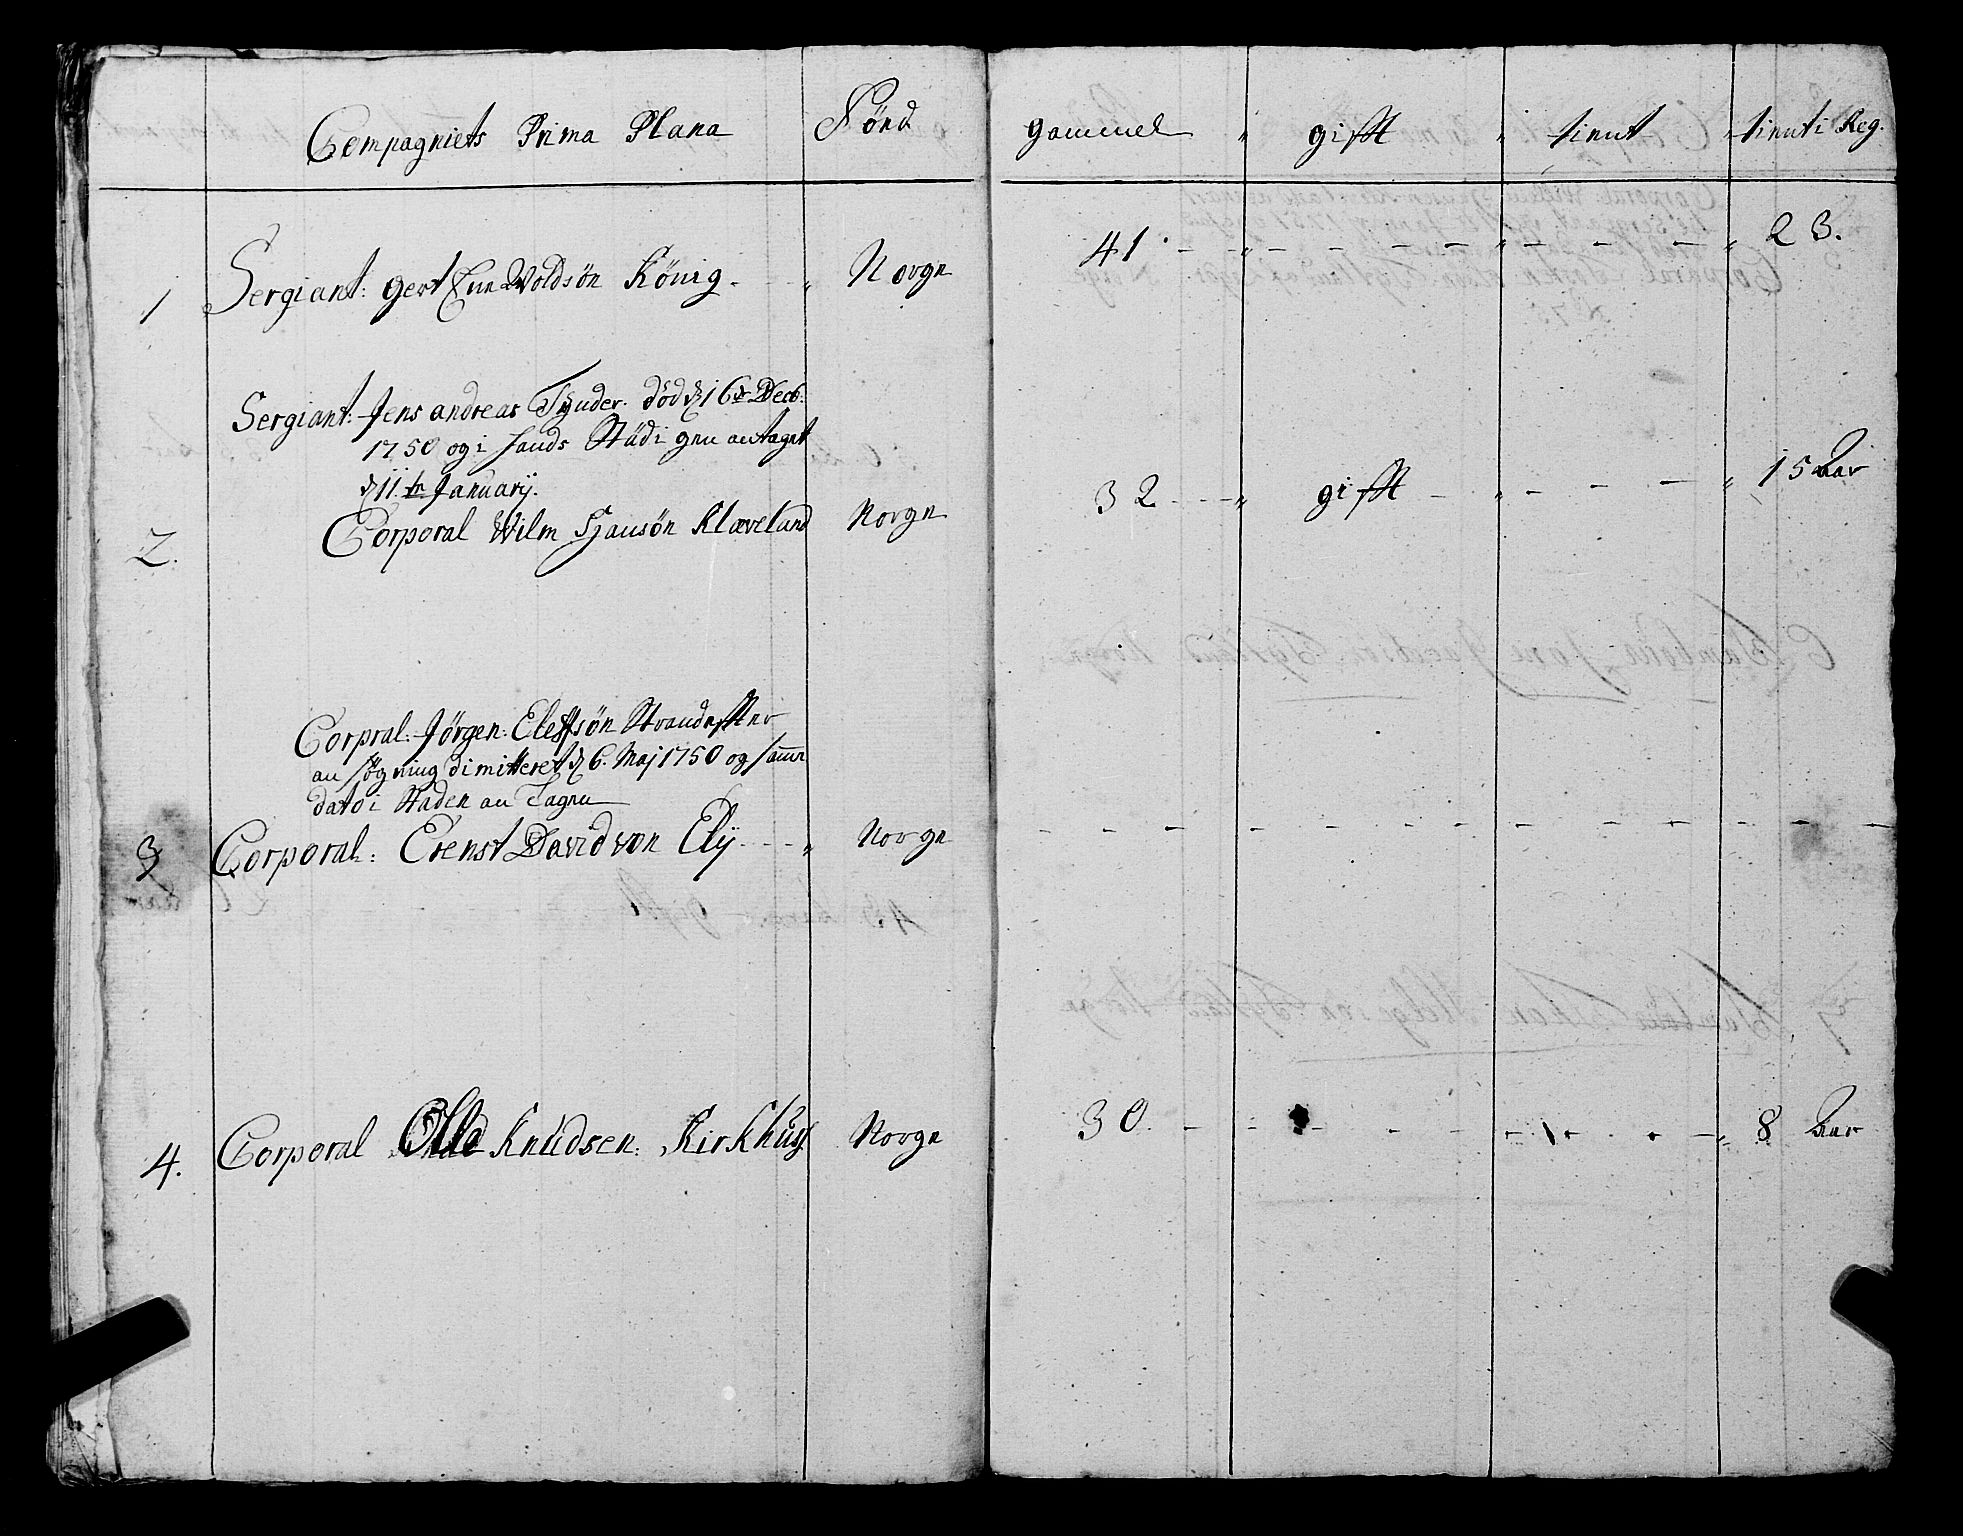 Compagniets Prima Plana
Fönd
gammel
gifft
tient
tient i Reg.
1
Sergiant: Gert Woldsön König
Norge
41
23.
Sergiant: Jens andreas Tyuder. död d 16de Decb:
1750 og i hands Städ igen antaget
d 11te Januarij.
2.
Corporal Wilm Hansön Klæveland
Norge
32
gifft
15 Aar
Corpral: Jörgen Eleffsön Strand effter
an søgning dimitteret d 6. Maj 1750 og samme
dato i Staden an Tagen
3
Corporal: Erenst David von Elij
Norge
4.
Corporal Olle Knudsen Kirkhuss
Norge
30.
8 Aar